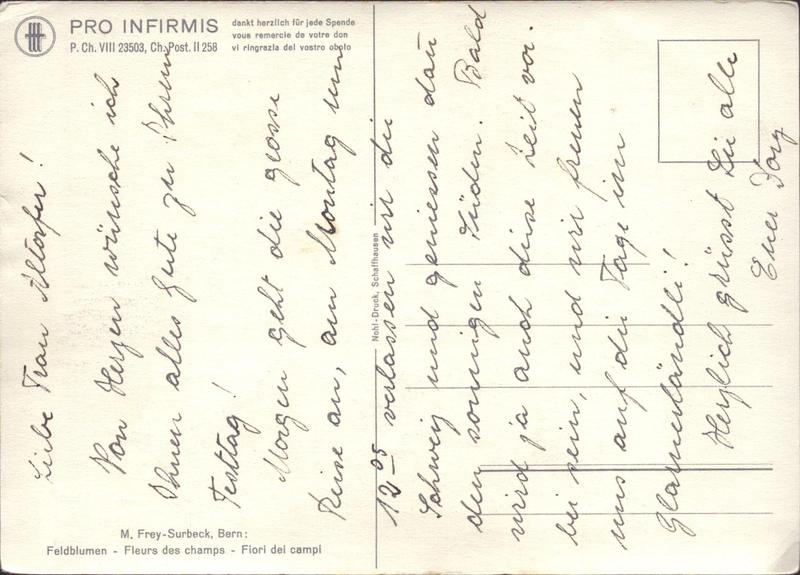 PRO INFIRMIS
P. Ch. VIII 23503, Ch. Post. II 258
dankt herzlich für jede Spende
vous remercie de votre don
vi ringrazia del vostro obolo
Liebe Frau Altorfer!
Von Herzen wünsche ich
Ihnen alles Gute zu Ihrem
Festtag!
Morgen geht die grosse
Reise an, am Montag um
12.05 verlassen wir die
Schweiz und geniessen dann
den sonnigen Süden. Bald
wird ja auch diese Zeit vor-
bei sein, und wir freuen
uns auf die Tage im
Glarnerländli!
Herzlich grüsst Sie alle
Nohl-Druck, Schaffhausen
M. Frey-Surbeck, Bern:
Feldblumen - Fleurs des champs - Fiori dei campi